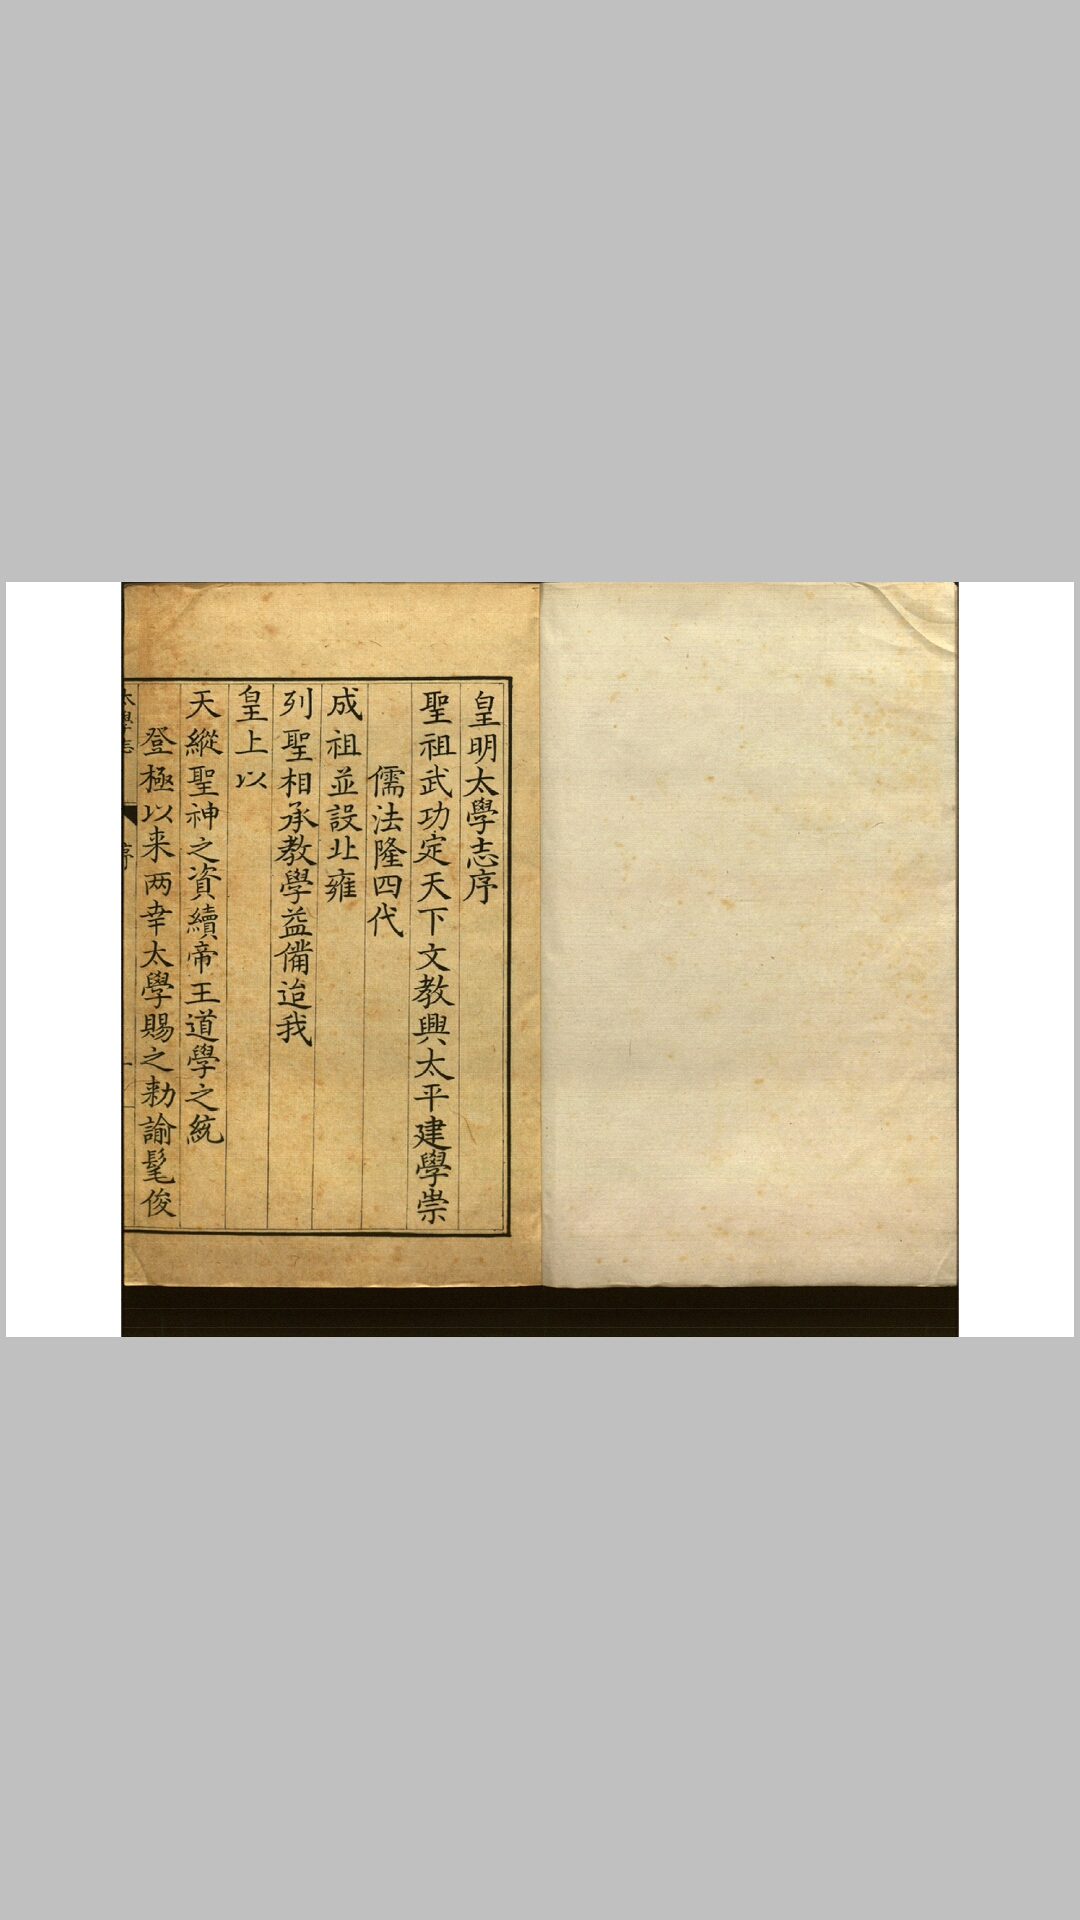 皇明太學志序
聖祖武功定天下文教興太平建學崇
儒法隆四代
成祖並設北雍
列聖相承教學益備迨我
皇上以
天縱聖神之資續帝王道學之統
登極以来两幸太學賜之勑諭髦俊
太學志 序 一